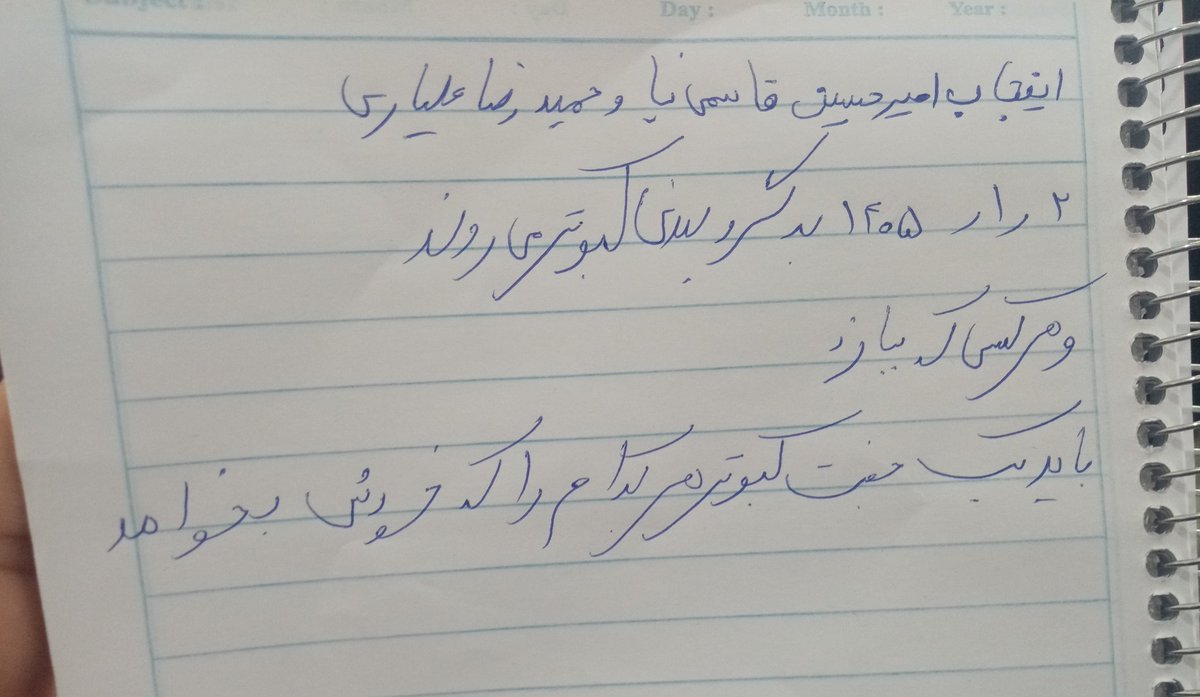 Subject :
Day :
Month :
Year :
اینجاب امیرحسین قاسمی نیا و حمیدرضا علیاری
۲ ر ۱ ر ۱۴۰۵ به گرو بندی کبوتر می روند
و هر کسی که ببازد
باید یک جفت کبوتر هر کدام را که خودش بخواهد